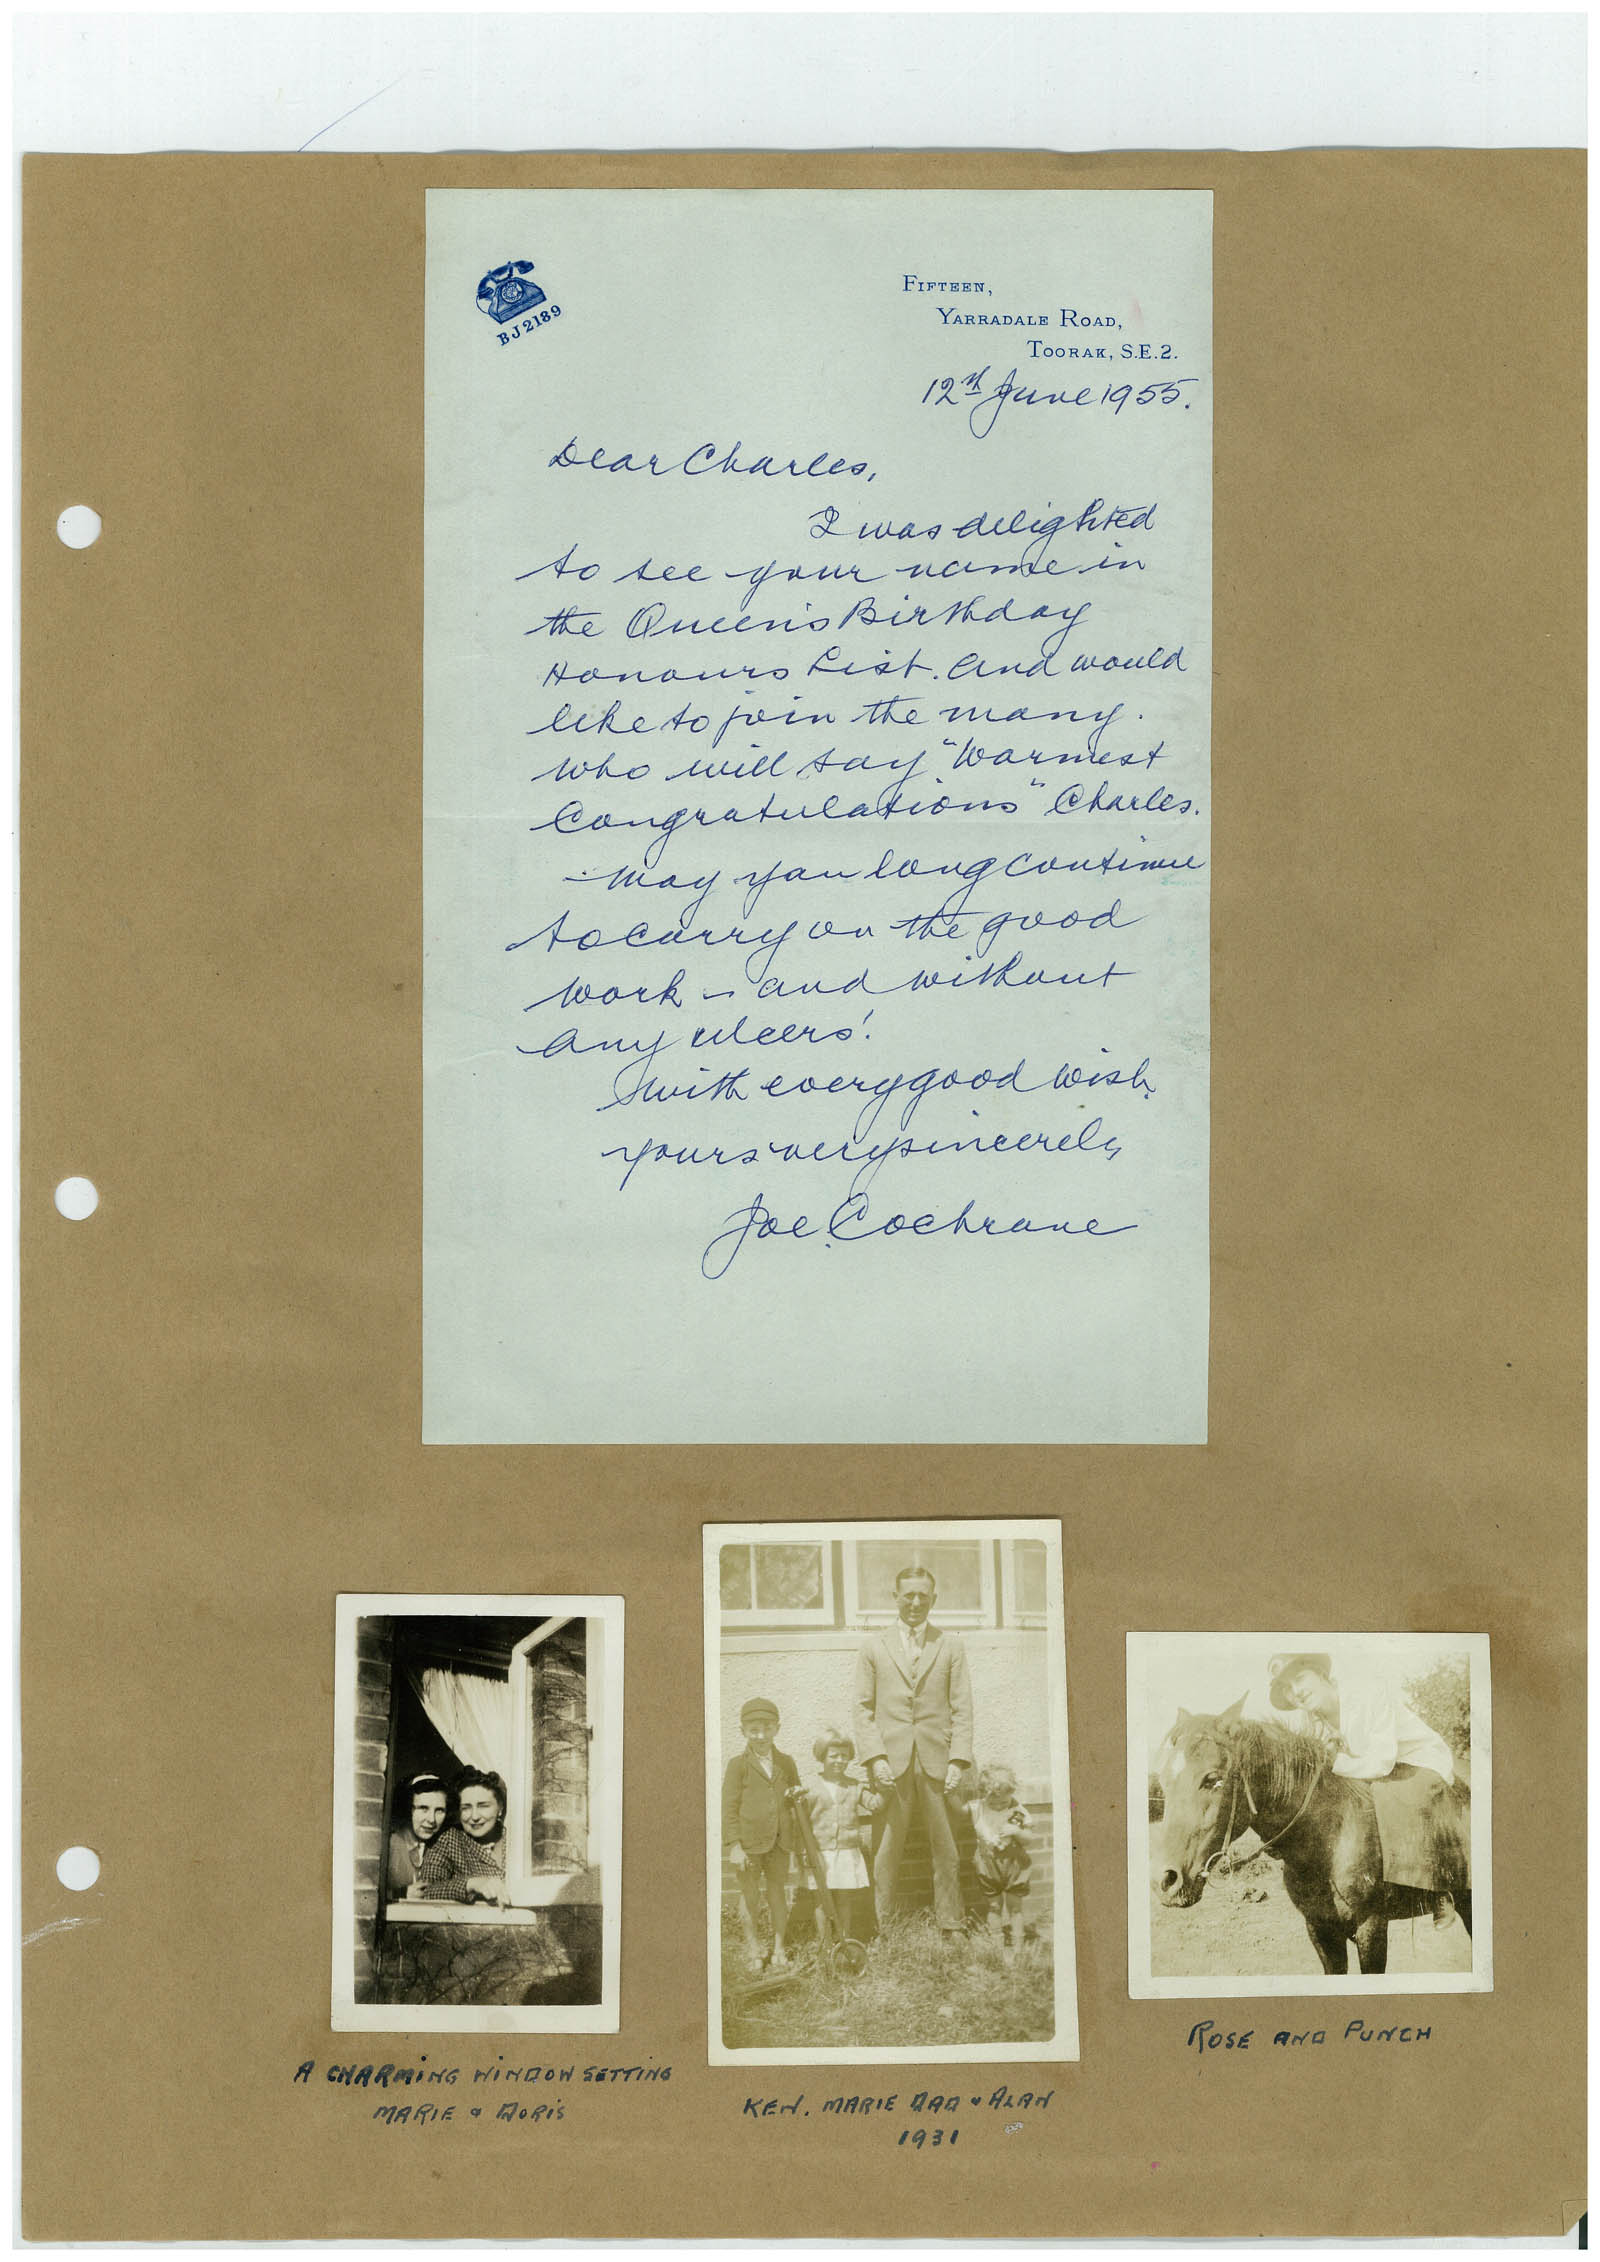 BJ2189
FIFTEEN,
YARRADALE ROAD,
TOORAK, S.E.2.
12th June 1955.
Dear Charles,
I was delighted
to see your name in
the Queen's Birthday
Honours List. and would
like to join the many.
who will say "Warmest
Congratulations" Charles.
- May you long continue
to carry on the good
work - and without
any ulcers!
With every good wish.
Yours very sincerely,
Joe. Cochrane
A CHARMING WINDOW SETTING
MARIE & DORIS
KEN. MARIE DAD & ALAN
1931
ROSE AND PUNCH